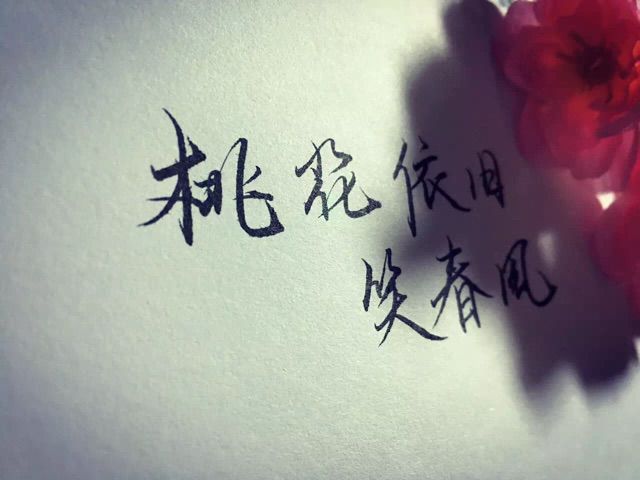 桃花依旧
笑春风